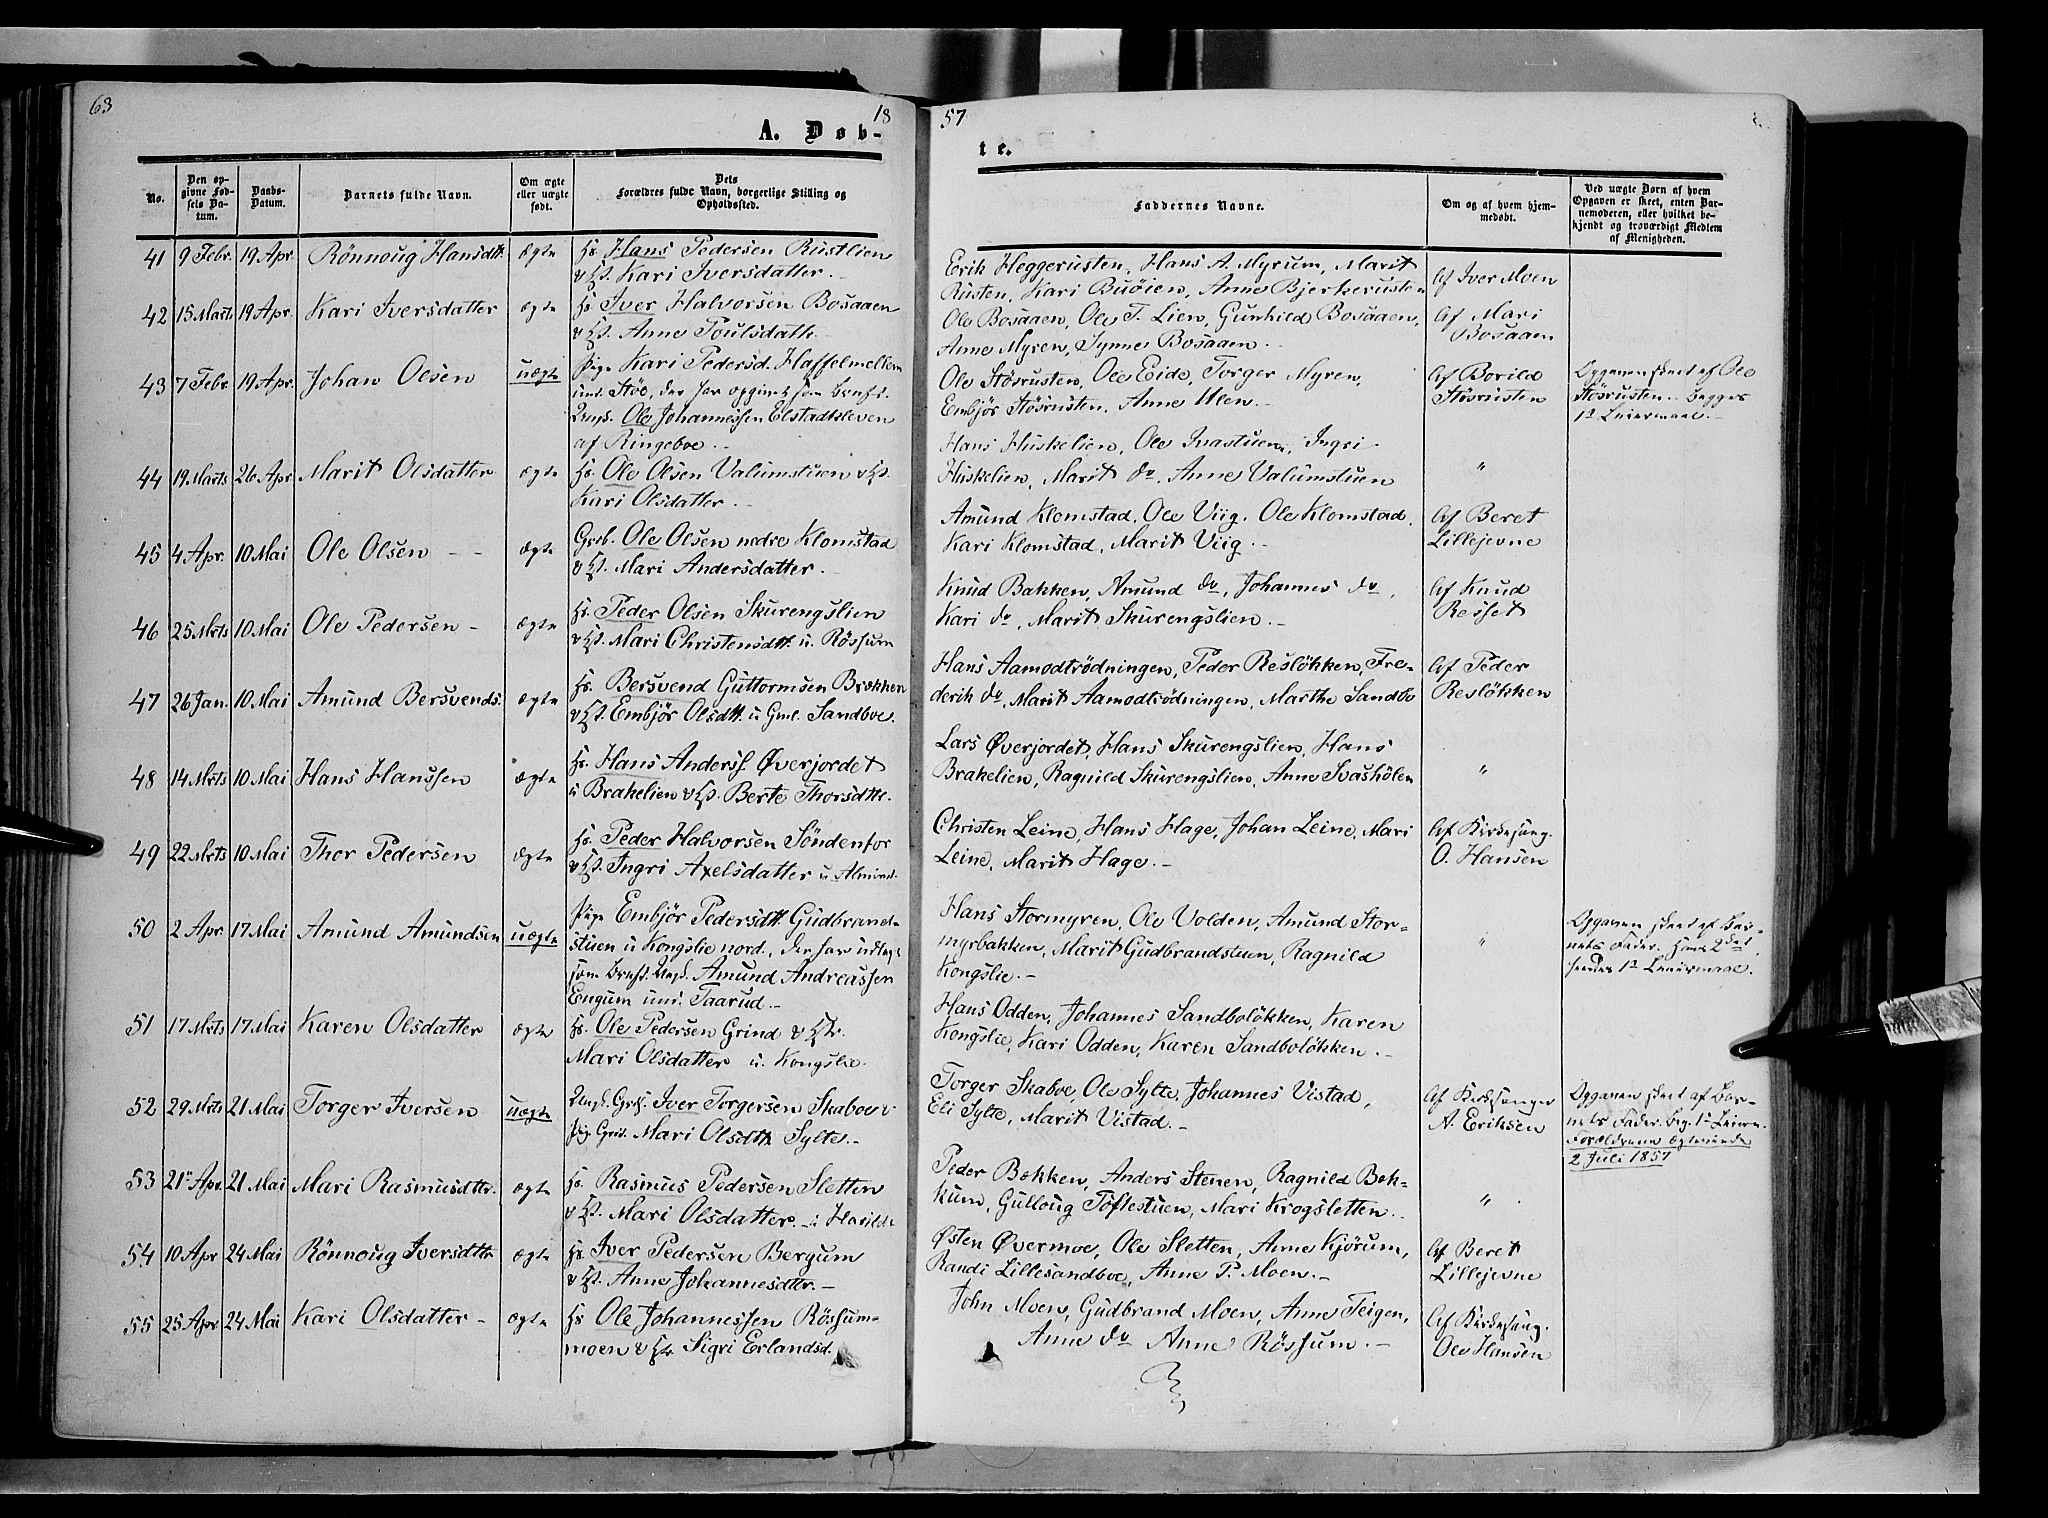 63
18
57
A. Døb-
te.
No.
Den op-
givne Fød-
sels Da-
tum.
Daabs-
Datum.
Barnets fulde Navn.
Om ægte
eller uægte
født.
Dets
Forældres fulde Navn, borgerlige Stilling og
Opholdssted.
Faddernes Navne.
Om og af hvem hjem-
medøbt.
Ved uægte Børn af hvem
Opgaven er skeet, enten Bar-
nemoderen, eller hvilket be-
kjendt og troværdigt Medlem
af Menigheden.
41 9 Febr. 19 Apr. Rönnoug Hansdtr. ægte
Hs. Hans Pedersen Rustlien
& Hst. Kari Iversdatter.
Erik Heggerusten, Hans A. Myrum, Marit
Rusten, Kari Buöien, Anne Bjerkerusten
Af Iver Moen
42 15 Marts 19 Apr. Kari Iversdatter ægte
Hs. Iver Halvorsen Bosaaen
& Hst. Anne Poulsdatt.
Ole Bosaaen, Ole T. Lien, Gunhild Bosaaen,
Anne Myren, Synne Bosaaen.
Af Mari
Bosaaen
43 7 Febr 19 Apr. Johan Olsen uægte
Pige Kari Pedersd. Haffelmellem
und. Stöe, der har opgivet som Barnef.
Ungk. Ole Johannessen Elstadkleven
af Ringeboe.
Ole Stösrusten, Ole Eide, Torger Myren,
Embjör Stösrusten, Anne Ulen.
Af Borild
Stösrusten
Opgaven skeet af Ole
Stösrusten. Begges
1st Leiermaal.
44 19 Marts 26 Apr Marit Olsdatter ægte
Hs. Ole Olsen Valumstuen & Hst.
Kari Olsdatter.
Hans Huskelien, Ole Ivastuen, Ingri
Huskelien, Marit do, Anne Valumstuen
"
45 4 Apr. 10 Mai Ole Olsen - - ægte
Grb. Ole Olsen nedre Klomstad
& Hst. Mari Andersdatter.
Amund Klomstad, Ole Viig, Ole Klomstad,
Kari Klomstad, Marit Viig.
Af Beret
Lillejevne
46 25 Mrts 10 Mai Ole Pedersen - ægte
Hs. Peder Olsen Skurengslien
& Hst. Mari Christensdtt. u. Rössum
Knud Bakken, Amund do, Johannes do,
Kari do, Marit Skurengslien.
Af Knud
Resset
47 26 Jan. 10 Mai Amund Bersvends. ægte
Hs. Bersvend Guttormsen Brækken
& Hst. Embjör Olsdtt. u Gml. Sandboe.
Hans Aamodtrödningen, Peder Reslökken, Fre-
derik do, Marit Aamodtrödningen, Marthe Sandbo
Af Peder
Reslökken
48 14 Mrts 10 Mai Hans Hanssen ægte
Hs. Hans Anderss. Överjordet
u Brakelien & Hst. Berte Thorsdtt.
Lars Överjordet, Hans Skurengslien, Hans
Brakelien, Ragnild Skurengslien, Anne Svashölen
"
49 22 Mrts 10 Mai Thor Pedersen ægte
Hs. Peder Halvorsen Söndenfor
& Hst. Ingri Axelsdatter u Almind.
Christen Leine, Hans Hage, Johan Leine, Mari
Leine, Marit Hage.
Af Kirkesang.
O. Hansen
50 2 Apr. 17 Mai Amund Amundsen uægte
Pige Embjör Pedersdtt. Gudbrand-
stuen u Kongslie nord., der har udlagt
som Barnef. Ungk. Amund Andreassen
Engum und. Taarud.
Hans Stormyren, Ole Volden, Amund Stor-
myrbakken, Marit Gudbrandstuen, Ragnild
Kongslie.
"
Opgaven skeet af Bar-
nets Fader. Hans 2det,
hendes 1st Leiermaal.
51 17 Mrts 17 Mai Karen Olsdatter ægte
Hs. Ole Pedersen Grind & Hst.
Mari Olsdatter u. Kongslie.
Hans Odden, Johannes Sandbolökken, Karen
Kongslie, Kari Odden, Karen Sandbolökken.
52 29 Mrts 21 Mai Torger Iversen uægte
Ungk. Grds. Iver Torgersen Skaboe &
Pig. Grds. Mari Olsdtt. Sylte.
Torger Skaboe, Ole Sylte, Johannes Vistad,
Eli Sylte, Marit Vistad.
Af Kirkesanger
A. Eriksen
Opgaven skeet af Bar-
nets Fader. Beg. 1st Leierm.
Forældrene ægteviede
2 Juli 1857
53 21 Apr. 21 Mai Mari Rasmusdtr. ægte
Hs. Rasmus Pedersen Sletten
& Hst. Mari Olsdatter.
Peder Bekken, Anders Stenen, Ragnild Bek-
kum, Gulloug Toftestuen, Mari Krogsletten.
"
54 10 Apr 24 Mai Rönnoug Iversdtr. ægte
Hs. Iver Pedersen Bergum
& Hst. Anne Johannesdtr.
Östen Övermoe, Ole Sletten, Anne Kjörum,
Randi Lillesandboe, Anne P. Moen.
Af Beret
Lillejevne
55 25 Apr 24 Mai Kari Olsdatter - ægte
Hs. Ole Johannessen Rössum-
moen & Hst. Sigri Erlandsd.
John Moen, Gudbrand Moen, Anne Teigen,
Anne do Anne Rössum.
Af Kirkesang.
Ole Hansen